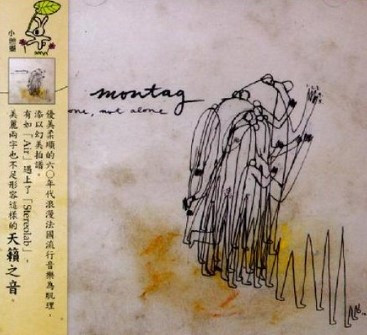 montag
one, not alone
優美柔順的六〇年代浪漫法國流行音樂為肌理，
添以幻美拍譜。
有如「Air」遇上了「Stereolab」。
美麗兩字也不足形容這樣的天籟之音。